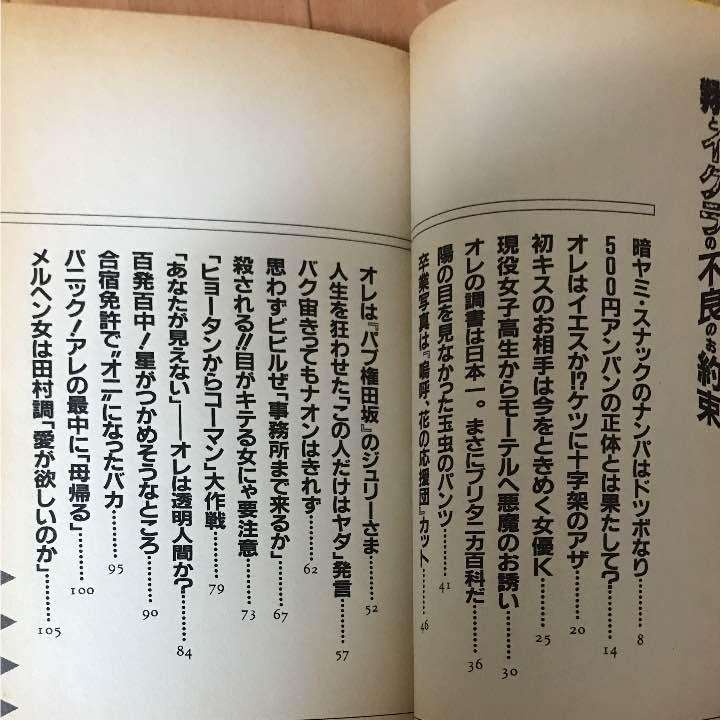 翔とイクラの不良のお約束
暗ヤミ・スナックのナンパはドツボなり……8
500円アンパンの正体とは果たして？……14
オレはイエスか!?ケツに十字架のアザ……20
初キスのお相手は今をときめく女優K……25
現役女子高生からモーテルへ悪魔のお誘い……30
オレの調書は日本一。まさにブリタニカ百科だ……36
陽の目を見なかった玉虫のパンツ……41
卒業写真は『嗚呼、花の応援団』カット……46
オレは『パブ権田坂』のジュリーさま……52
人生を狂わせた「この人だけはヤダ」発言……57
バク宙きってもナオンはきれず……62
思わずビビルぜ「事務所まで来るか」……67
殺される!!目がキテる女にゃ要注意……73
「ピョータンからコーマン」大作戦……79
「あなたが見えない」──オレは透明人間か？……84
百発百中！星がつかめそうなところ……90
合宿免許で"オニ"になったバカ……95
パニック！アレの最中に「母帰る」……100
メルヘン女は田村調「愛が欲しいのか」……105